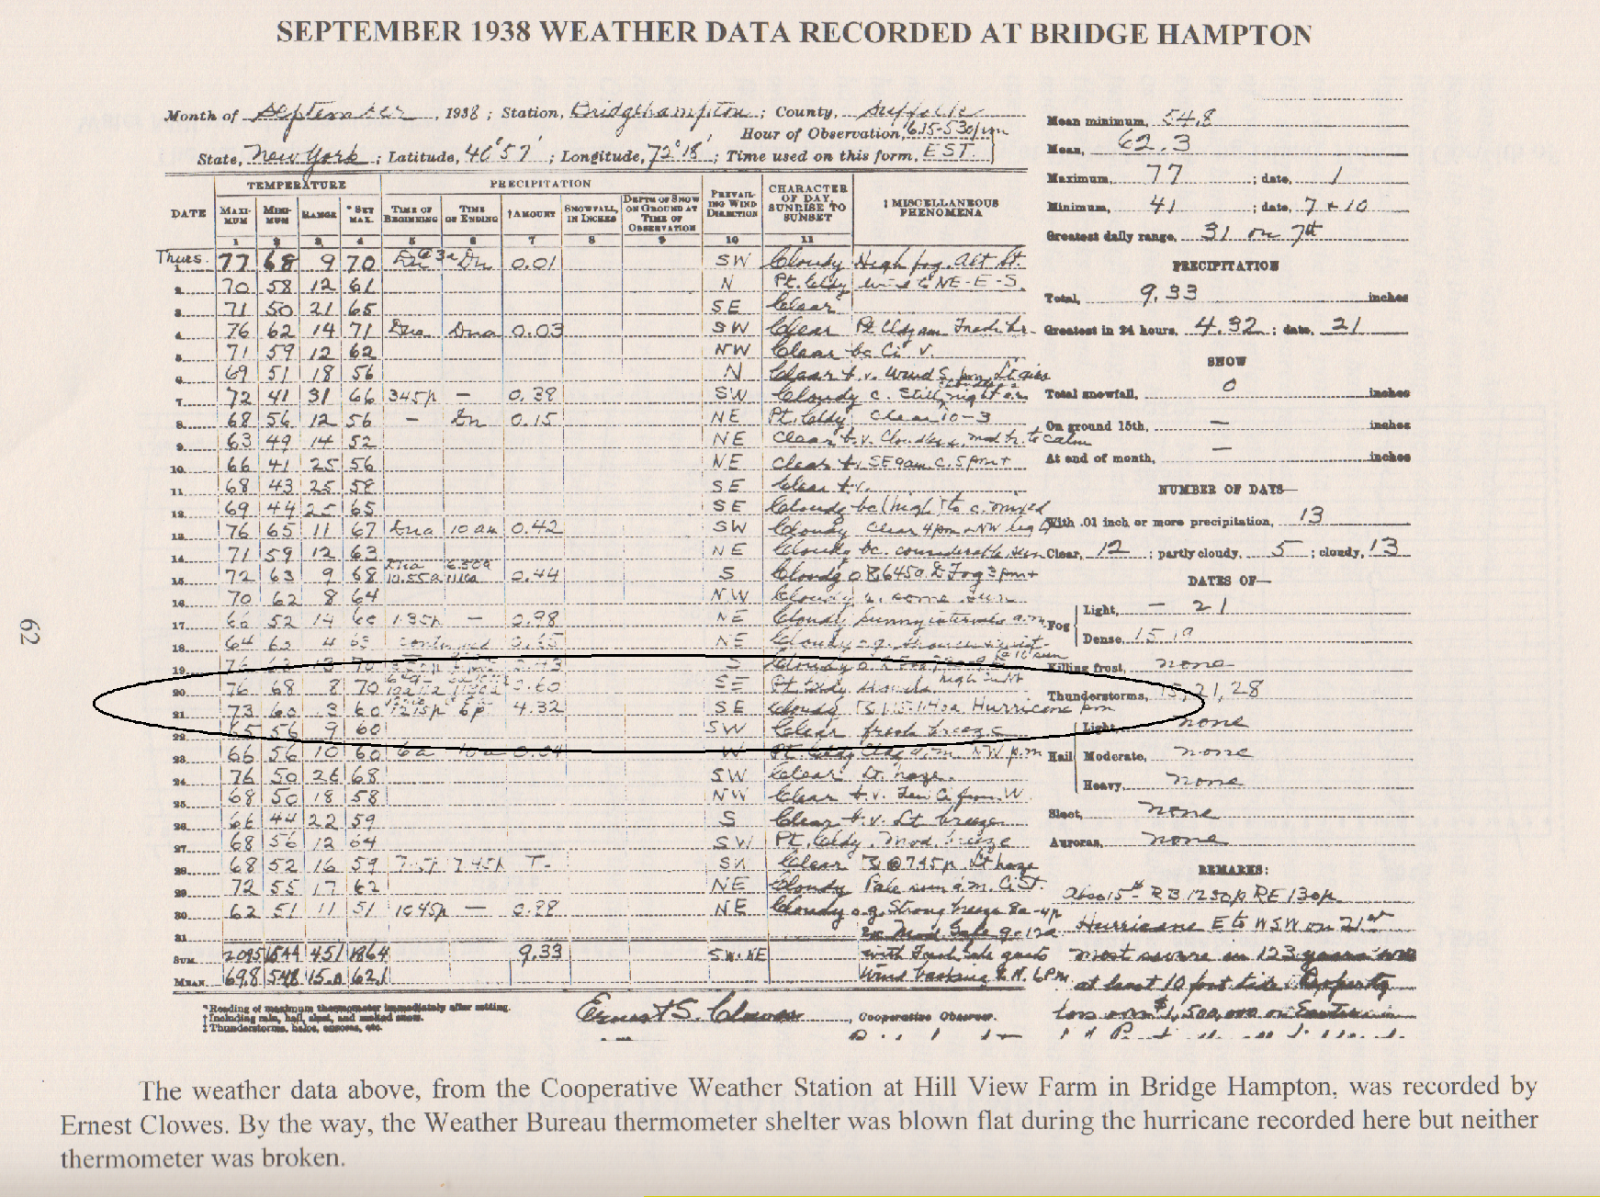 SEPTEMBER 1938 WEATHER DATA RECORDED AT BRIDGE HAMPTON
Month of September, 1938; Station, Bridgehampton; County, Suffolk
Hour of Observation, 615-530pm
State, New York; Latitude, 40°57'; Longitude, 72°18'; Time used on this form, E.S.T.
TEMPERATURE PRECIPITATION
DATE MAXIMUM MINIMUM RANGE *SET MAX. TIME OF BEGINNING TIME OF ENDING †AMOUNT SNOWFALL, IN INCHES DEPTH OF SNOW ON GROUND AT TIME OF OBSERVATION PREVAILING WIND DIRECTION CHARACTER OF DAY, SUNRISE TO SUNSET ‡ MISCELLANEOUS PHENOMENA
1 2 3 4 5 6 7 8 9 10 11
Thurs. 1 77 68 9 70 0.01 SW Cloudy High fog. Alt St.
2 70 58 12 61 N Pt. Cldy wind to NE-E-S.
3 71 50 21 65 SE Clear
4 76 62 14 71 Dna Dna 0.03 SW Clear
5 71 59 12 62 NW Clear bc Ci v.
6 69 51 18 56 N Clear
7 72 41 31 66 345p — 0.38 SW Cloudy
8 68 56 12 56 — Dn 0.15 NE Pt. Cldy Clear 10-3
9 63 49 14 52 NE Clear b.v.
10 66 41 25 56 NE Clear
11 68 43 25 58 SE Clear
12 69 44 25 65 SE Cloudy
13 76 65 11 67 Dna 10am 0.42 SW Cloudy Clear 4pm
14 71 59 12 63 NE Cloudy bc. considerable sun
15 72 63 9 68 10.55a 0.44 S Cloudy Fog 3pm+
16 70 62 8 64 NW Cloudy some sun
17 66 52 14 60 135p — 0.98 NE Cloudy Sunny intervals a.m
18 64 60 4 63 continued NE Cloudy
19 70 S Cloudy
20 76 68 8 70 SE Pt. Cldy
21 73 60 3 60 1215p 6p 4.32 SE Cloudy Hurricane pm
22 65 56 9 60 SW Clear fresh breeze
23 66 56 10 60 6a 10a W Pt. Cldy Cldy a.m. NW p.m
24 76 50 26 68 SW Clear Lt. haze.
25 68 50 18 58 NW Clear b.v. Few Ci from W.
26 66 44 22 59 S Clear b.v. Lt breeze
27 68 56 12 64 SW Pt. Cldy. Mod. breeze
28 68 52 16 59 7.45p T. Clear @745p. Lt haze
29 72 55 17 62 NE Cloudy Pale sun a.m. Ci St.
30 62 51 11 51 1045p — NE Cloudy o.g. Strong breeze 8a-4p
31 Mod. Gale 9-12a
SUM 2095 1644 451 1864 9.33 SW-NE with Fresh Gale gusts
MEAN 69.8 54.8 15.0 62.1 Wind backing 6PM
Mean minimum, 54.8
Mean, 62.3
Maximum, 77; date, 1
Minimum, 41; date, 7 + 10
Greatest daily range, 31 on 7th
PRECIPITATION
Total, 9.33 inches
Greatest in 24 hours, 4.32; date, 21
SNOW
Total snowfall, 0 inches
On ground 15th, — inches
At end of month, — inches
NUMBER OF DAYS—
With .01 inch or more precipitation, 13
Clear, 12; partly cloudy, 5; cloudy, 13
DATES OF—
Fog Light, — 21
Dense, 15, 19
Killing frost, none
Thunderstorms, 15, 21, 28
Hail Light, none
Moderate, none
Heavy, none
Sleet, none
Auroras, none
REMARKS:
Also 15th RB 1230p RE 130p.
Hurricane E to WSW on 21st
most severe in 123 years
at least 10 foot tide Property
loss over $1,500,000 on Eastern
*Reading of maximum thermometer immediately after setting.
†Including rain, hail, sleet, and melted snow.
‡Thunderstorms, halos, auroras, etc.
Ernest S. Clowes, Cooperative Observer.
62
The weather data above, from the Cooperative Weather Station at Hill View Farm in Bridge Hampton, was recorded by
Ernest Clowes. By the way, the Weather Bureau thermometer shelter was blown flat during the hurricane recorded here but neither
thermometer was broken.